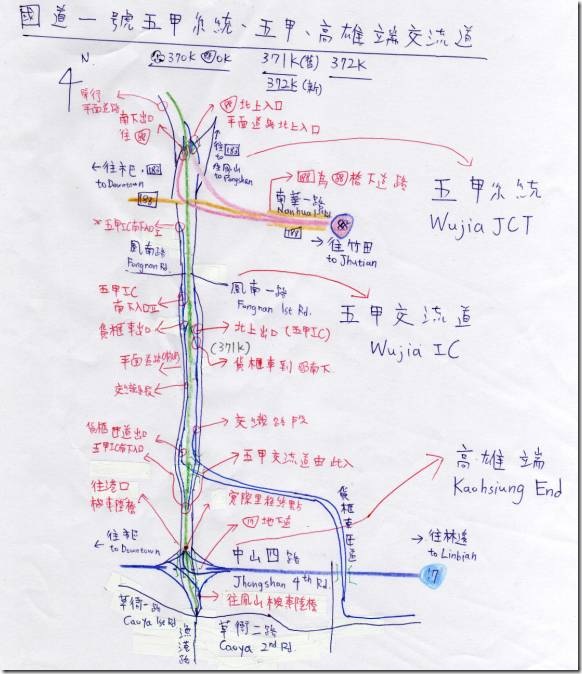 國道一號五甲系統、五甲、高雄端交流道
370K
0K
371K(舊)
372K(新)
372K
N
單行
平面道路
南下出口
往 88
88 北上入口
平面道路北上入口
往 183
to
往鳳山
to Fongshan
往市區
183
to Downtown
183
183 為 88 橋下道路
南華一路
Nanhua 1st Rd
88
183
往竹田
to Jhutian
五甲系統
Wujia JCT
鳳南路
Fungnan Rd.
鳳南一路
Fungnan 1st Rd.
五甲IC
南下入口
貨櫃車出口
北上出口(五甲IC)
(371K)
平面道路
貨櫃車到
南下
交織路段
五甲交流道
Wujia IC
交織路段
貨櫃車道出口
五甲IC南下入口
五甲交流道由此入
往港口
機車陸橋
實際里程終點
17 地下道
貨櫃車匝道
高雄端
Kaohsiung End
往市區
to Downtown
中山四路
Jhongshan 4th Rd.
往林邊
to Linbian
17
往鳳山機車陸橋
草衙一路
Caoya 1st Rd
漁港路
草衙二路
Caoya 2nd Rd.